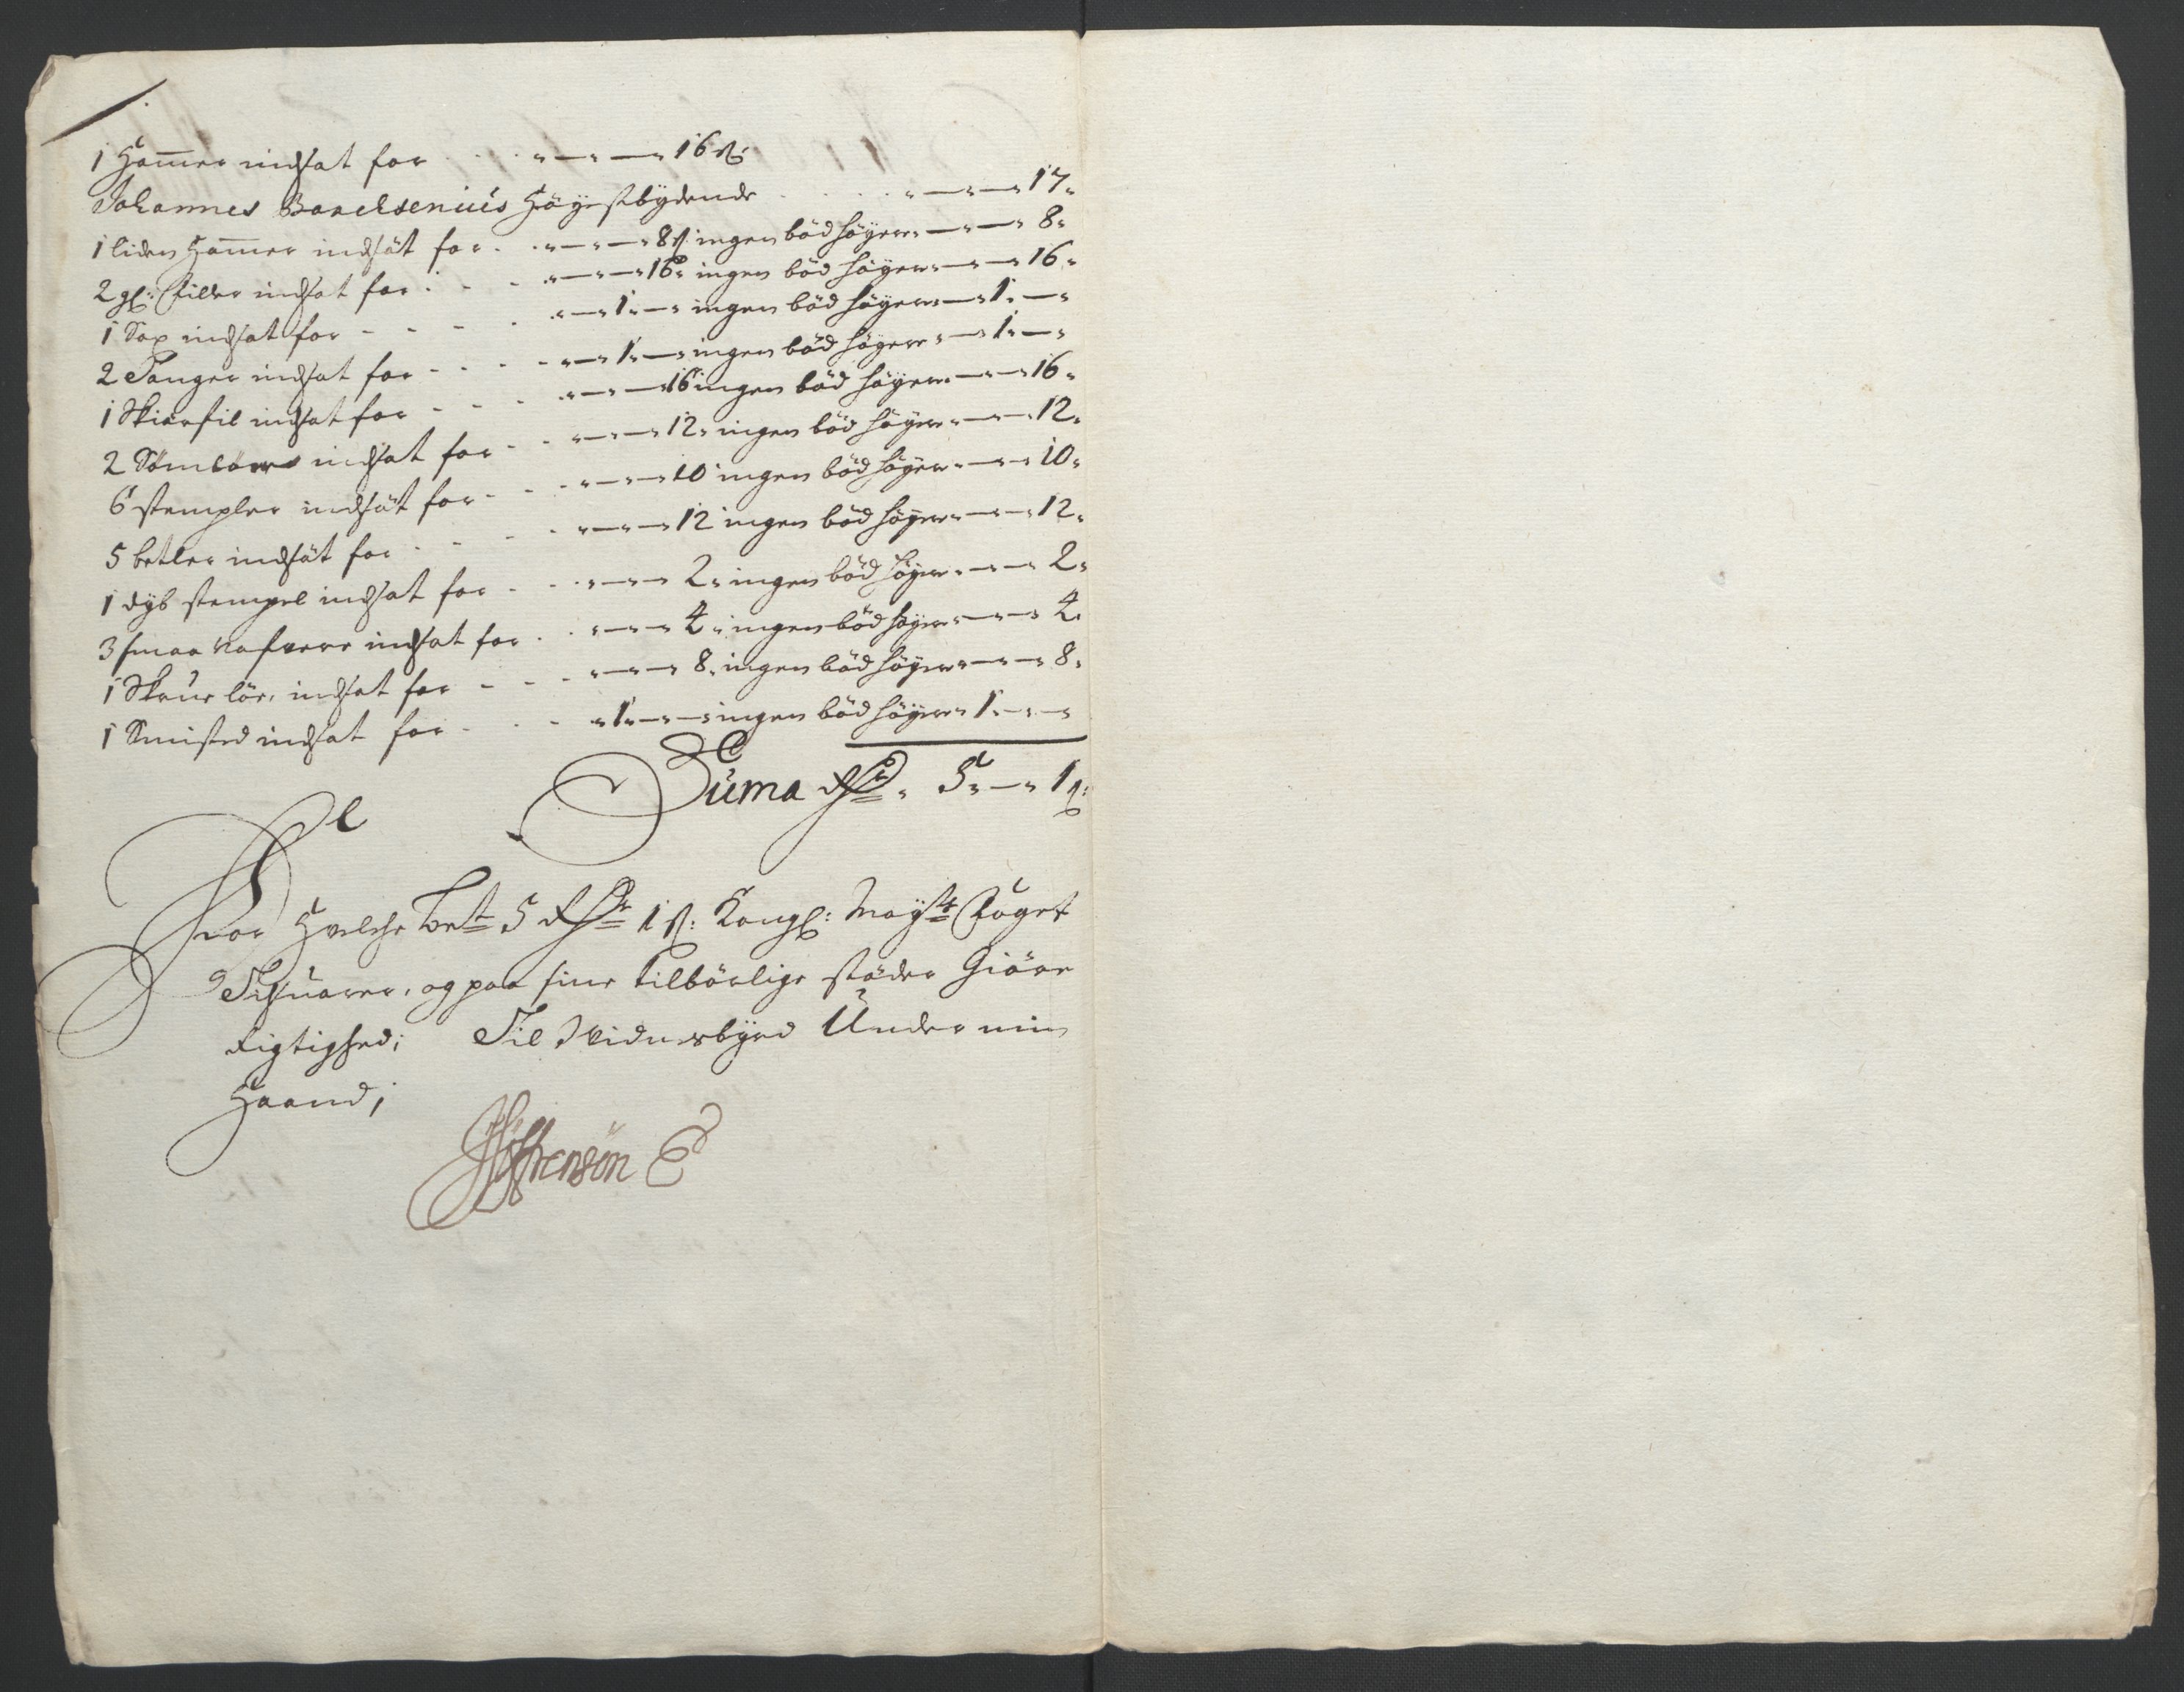 1 Ham̄er indsat for . . . " — " — " 16 ß:
Johannes Baneksenius Høyestbydende . . . . " — " — " 17 "
1 liden Ham̄er indsat for . . " — " — " 8 ß ingen bød høyere " — " — " 8 "
2 gl: Filler indsat for . . . " — " — " 16 " ingen bød høyere " — " — " 16 "
1 Sax indsat for - - - . " — " 1 " — " ingen bød høyere " — " 1 " — "
2 Tanger indsat for - - - - " — " 1 " — " ingen bød høyere " — " 1 " — "
1 Skierfil indsat for - - - " — " — " 16 ingen bød høyere " — " — " 16 "
2 Sømlöere indsat for - - " — " — " 12 " ingen bød høyere " — " — " 12 "
6 stempler indsat for - - - " — " — " 10 ingen bød høyere " — " — " 10 "
5 betler indsat for - - - - " — " — " 12 ingen bød høyere " — " — " 12 "
1 dyb stempel indsat for - . . " — " — " 2 " ingen bød høyere " — " — " 2 "
3 smaa Nafvere indsat for . . " — " — " 4 " ingen bød høyere " — " — " 4 "
1 Skrue lör: indsat for - - - " — " — " 8 " ingen bød høyere " — " — " 8 "
1 Smisted indsat for - - - " 1 " — " — " ingen bød høyere " 1 " — " — "
Suma Rdr " 5 " — " 1 ß:
For Hvelche bete 5 Rdr 1 ß: Kongl: Mayts Foget
Tilsuarer, og paa sine tilbørlige stæder Giøre
Rigtighed; Til Widnesbyrd Under min
Haand;